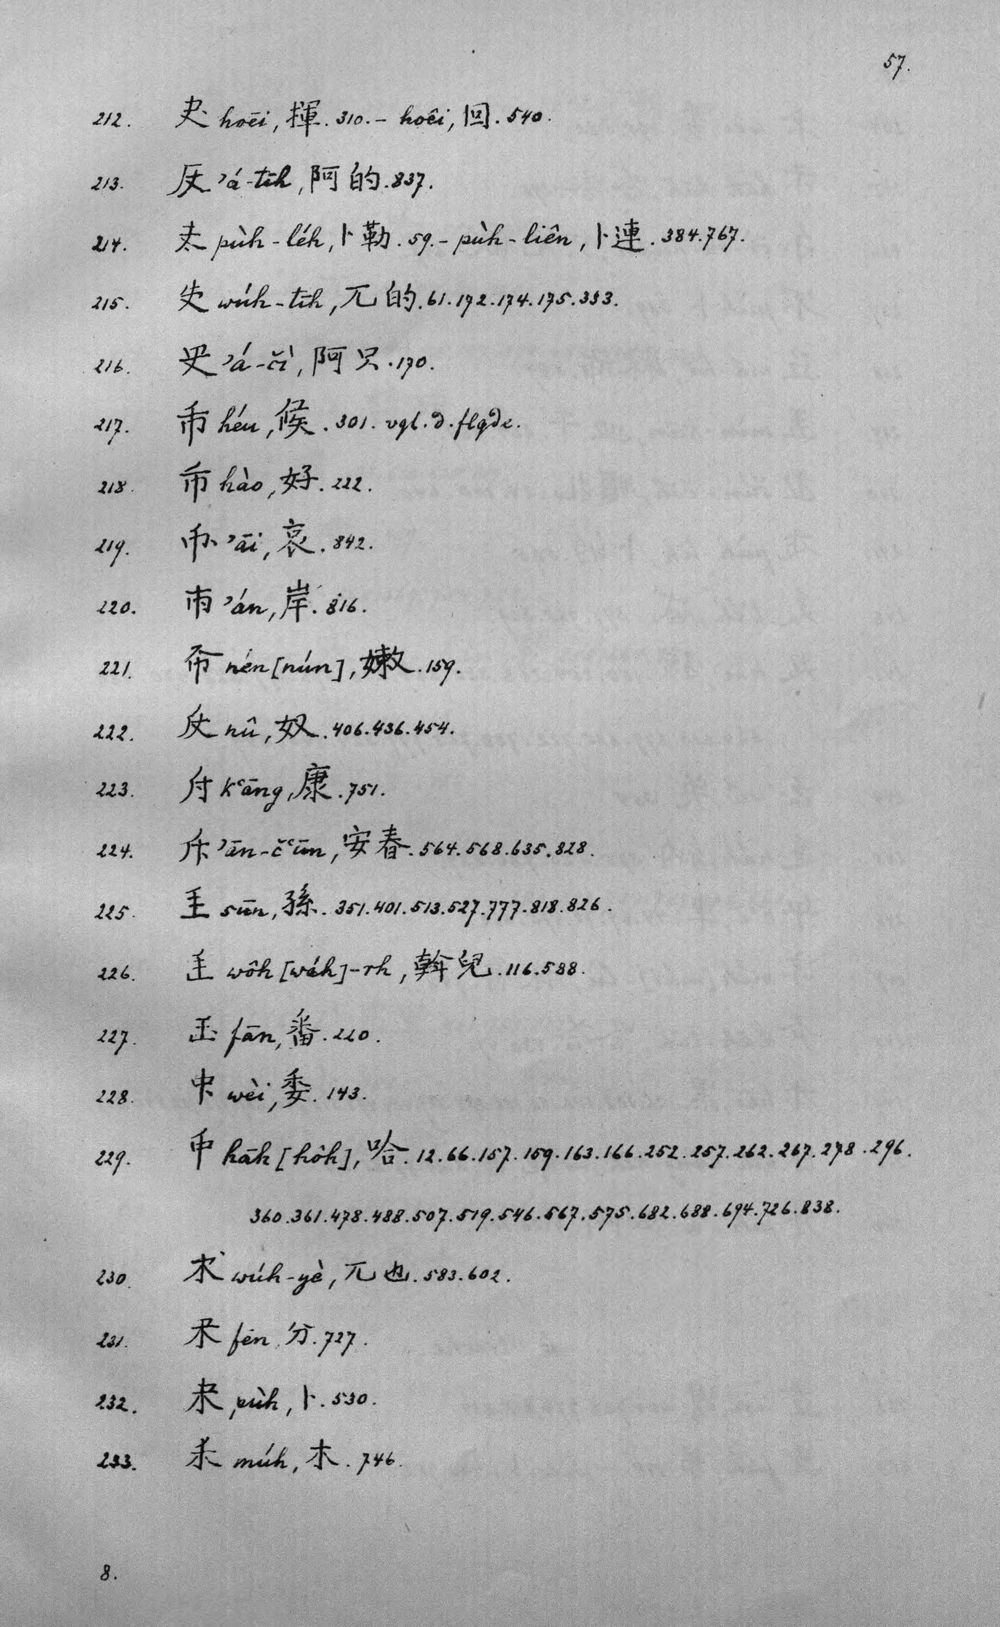 57.
212. hoēi, 揮. 310. – hoêi, 回. 540.
213. ʾá-tīh, 阿的. 837.
214. pùh-léh, 卜勒. 59. – pùh-liên, 卜連. 384. 767.
215. wúh-tīh, 兀的. 61. 172. 174. 175. 333.
216. ʾá-čì, 阿只. 170.
217. héu, 候. 301. vgl. d. flgde.
218. hào, 好. 222.
219. ʾāi, 哀. 842.
220. ʾán, 岸. 816.
221. nén [nún], 嫩. 159.
222. nû, 奴. 406. 436. 454.
223. kʿāng, 康. 751.
224. ʾān-čʿūn, 安春. 564. 568. 635. 828.
225. sūn, 孫. 351. 401. 513. 527. 777. 818. 826.
226. wôh [wáh]-rh, 斡兒. 116. 588.
227. fān, 番. 220.
228. wèi, 委. 143.
229. hāh [hôh], 哈. 12. 66. 157. 159. 163. 166. 252. 257. 262. 267. 278. 296.
360. 361. 478. 488. 507. 519. 546. 567. 575. 682. 688. 694. 726. 838.
230. wúh-yè, 兀也. 583. 602.
231. fēn, 分. 727.
232. pùh, 卜. 530.
233. múh, 木. 746.
8.